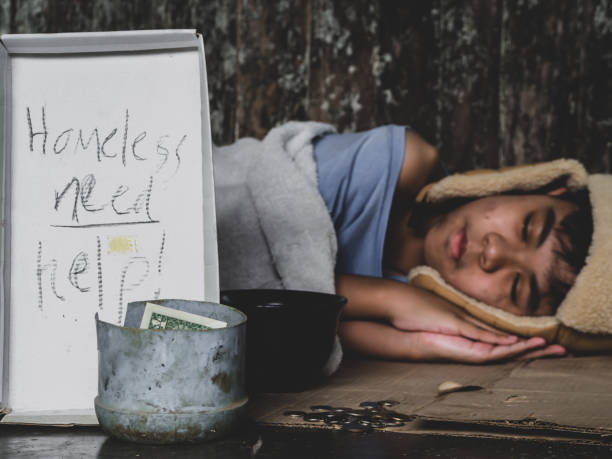 Homeless
need
help!